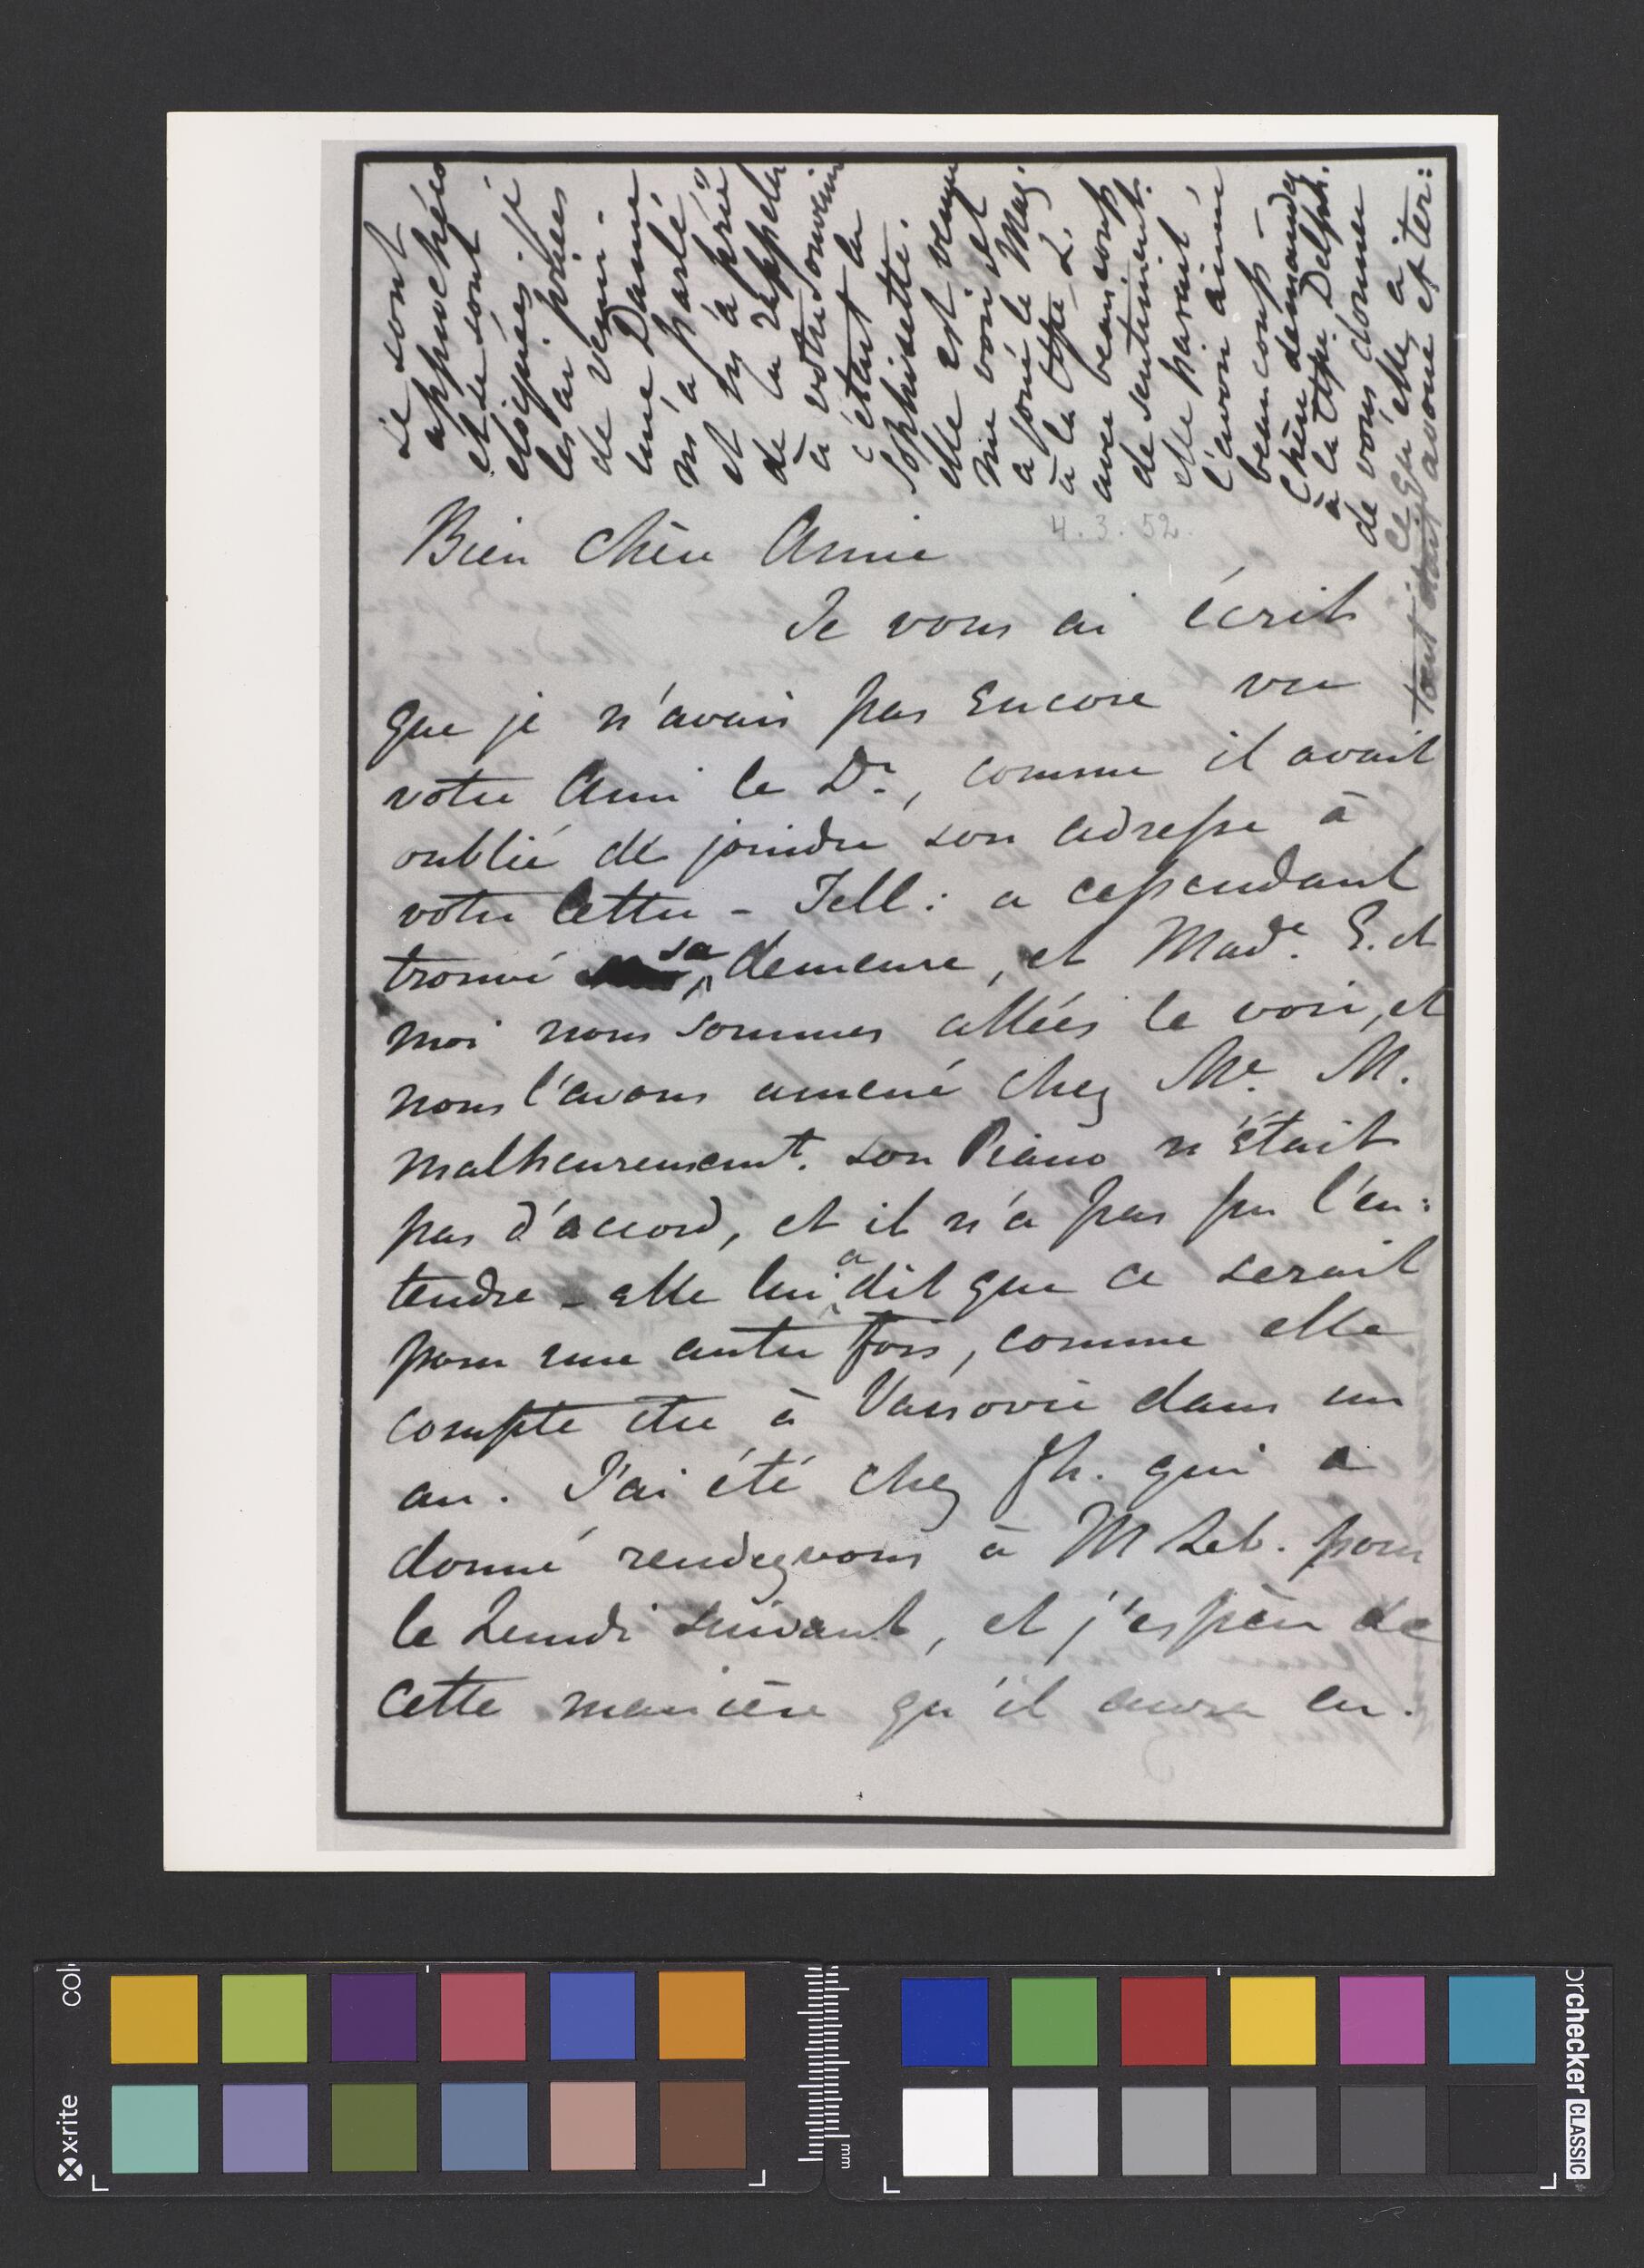 Bien chère Amie
4.3.52.
Je vous ai écrit
que je n'avais pas encore vu
votre Ami le Dr., comme il avait
oublié de joindre son adresse à
votre lettre - Tell: a cependant
trouvé sa demeure, et Made. E. et
moi nous sommes allées le voir, et
nous l'avons amené chez Me. M.
malheureusemt. son Piano n'était
pas d'accord, et il n'a pas pu l'en:
tendre - elle lui a dit que ce serait
pour une autre fois, comme elle
compte être à Varsovie dans un
an. J'ai été chez Th. qui a
donné rendezvous à M Leb. pour
le Lundi suivant, et j'espère de
cette manière qu'il aura en.
se sont
approchées
et se sont
éloignées; je
les ai priées
de venir.
une Dame
m'a parlé
et m'a priée
de la rappeler
à votre souvenir
c'était la
elle est venue
me voir et
a joué le Maz.
à la Ctsse L.
avec beaucoup
de sentiment.
elle paraît
l'avoir aimé
beaucoup -
Chère demandez
à la Ctsse Delph.
de vous donner
ce qu'elle a
x-rite
mm
orchecker CLASSIC